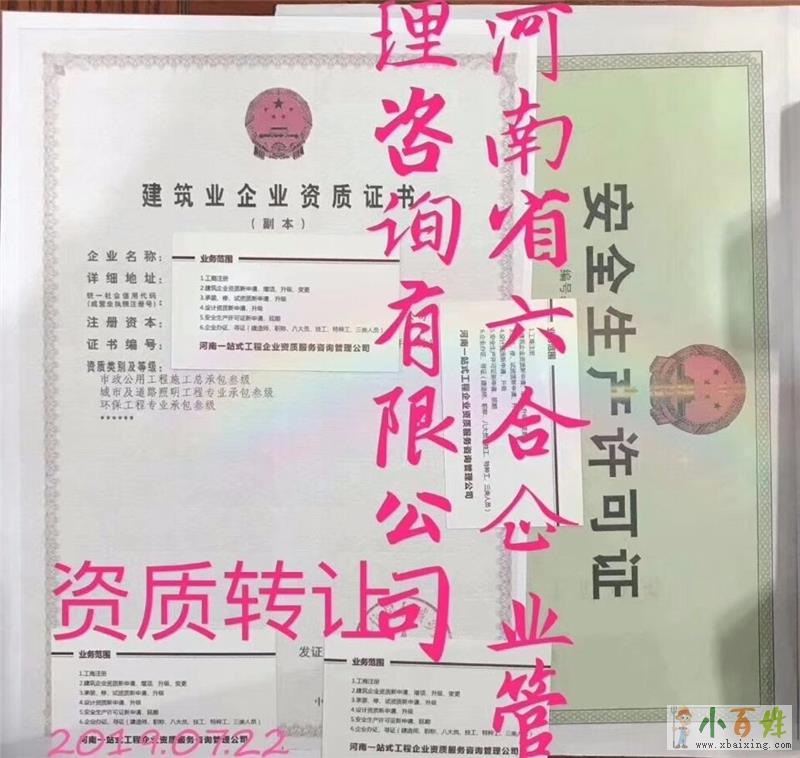 河南省六合企业管
理咨询有限公司
建筑业企业资质证书
(副本)
企业名称:
详细地址:
统一社会信用代码
(或营业执照注册号):
注册资本:
证书编号:
资质类别及等级:
市政公用工程施工总承包叁级
城市及道路照明工程专业承包叁级
环保工程专业承包叁级
******
业务范围
1.工商注册
2.建筑企业资质新申请、增项、升级、变更
3.承装、修、试资质新申请、升级
4.设计资质新申请、升级
5.安全生产许可证新申请、延期
6.企业办证、寻证(建造师、职称、八大员、技工、特种工、三类人员)
河南一站式工程企业资质服务咨询管理公司
安全生产许可证
编号
业务范围
1.工商注册
2.建筑企业资质新申请、增项、升级、变更
3.承装、修、试资质新申请、升级
4.设计资质新申请、升级
5.安全生产许可证新申请、延期
6.企业办证、寻证(建造师、职称、八大员、技工、特种工、三类人员)
河南一站式工程企业资质服务咨询管理公司
资质转让
发证
业务范围
1.工商注册
2.建筑企业资质新申请、增项、升级、变更
3.承装、修、试资质新申请、升级
4.设计资质新申请、升级
5.安全生产许可证新申请、延期
6.企业办证、寻证(建造师、职称、八大员、技工、特种工、三类人员)
河南一站式工程企业资质服务咨询管理公司
业务范围
1.工商注册
2.建筑企业资质新申请、增项、升级、变更
3.承装、修、试资质新申请、升级
4.设计资质新申请、升级
5.安全生产许可证新申请、延期
6.企业办证、寻证(建造师、职称、八大员、技工、特种工、三类人员)
河南一站式工程企业资质服务咨询管理公司
2019.07.22
小百姓
www.xbaixing.com